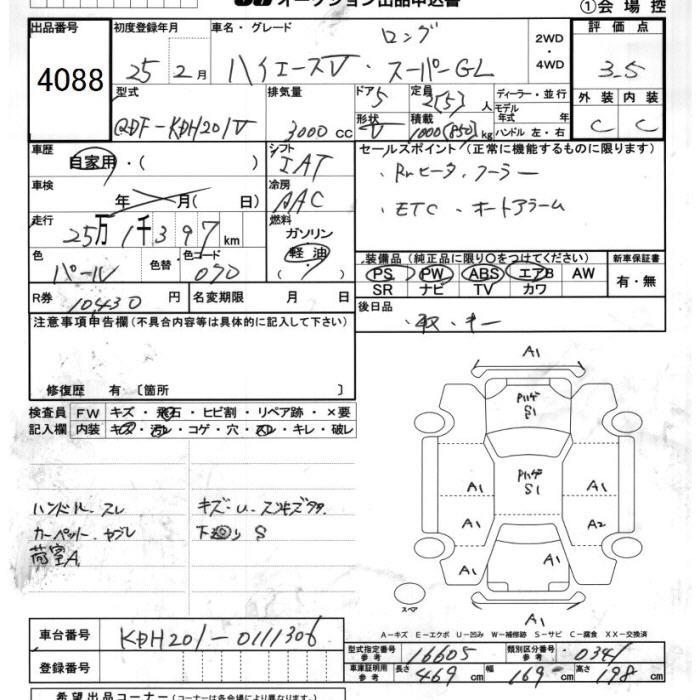 オークション出品申込書 ①会場控
出品番号 初度登録年月 車名・グレード 評価点
4088 25年2月 ハイエースV・スーパーGL ロング 2WD・4WD 3.5
型式 排気量 ドア 定員 ディーラー・並行 外装 内装
QDF-KDH201V 3000cc 5 2(5)人 モデル年式 年 C C
形状 V 積載 1000(850)kg ハンドル 左・右
車歴 シフト セールスポイント(正常に機能するものに限ります)
自家用・( ) IAT ・Rrヒータ・クーラー
車検 冷房 ・ETC・オートアラーム
年 月( 日) AAC
走行 燃料
25万1千397km ガソリン
軽油
色 色替 色コード
パール 070
装備品(純正品に限り○をつけてください) 新車保証書
PS PW ABS エアB AW 有・無
SR ナビ TV カワ
R券 10,430円 名変期限 月 日 後日品
・取・キー
注意事項申告欄(不具合内容等は具体的に記入して下さい)
修復歴 有〔箇所 〕
検査員 FW キズ・飛石・ヒビ割・リペア跡・×要
記入欄 内装 キズ・汚レ・コゲ・穴・スレ・キレ・破レ
ハンドル.スレ キズ・U・スリキズタタ
カーペット.ヤブレ 下廻り S
荷室A
A1
Pハゲ
S1
Pハゲ
S1
A1 A1
A1 A2
A1 A1
A1
スペア
A1
A-キズ E-エクボ U-凹み W-補修跡 S-サビ C-腐食 XX-交換済
車台番号 KDH201-0111306
型式指定番号 参考 16605 類別区分番号 参考 0341
登録番号 車庫証明用 参考 長さ 469cm 幅 169cm 高さ 198cm
希望出品コーナー(コーナーは各会場により異なります)